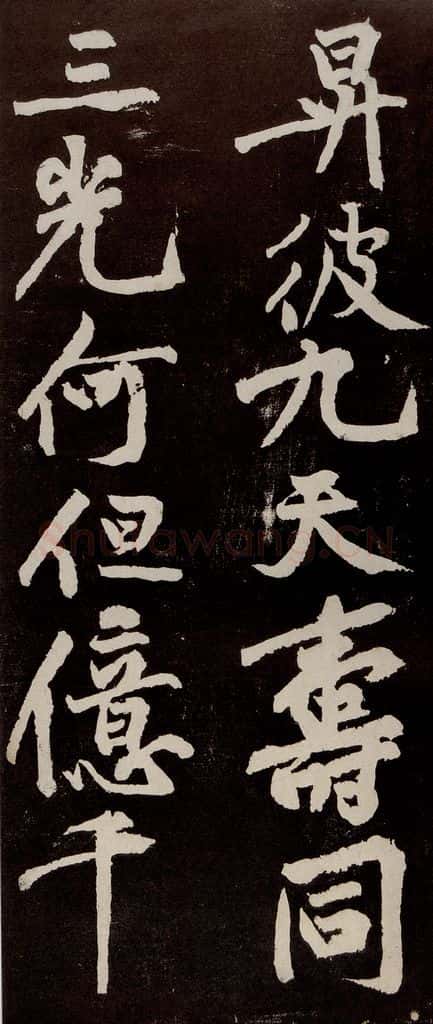 昇彼九天壽同
三光何但億千
Shufawang.CN